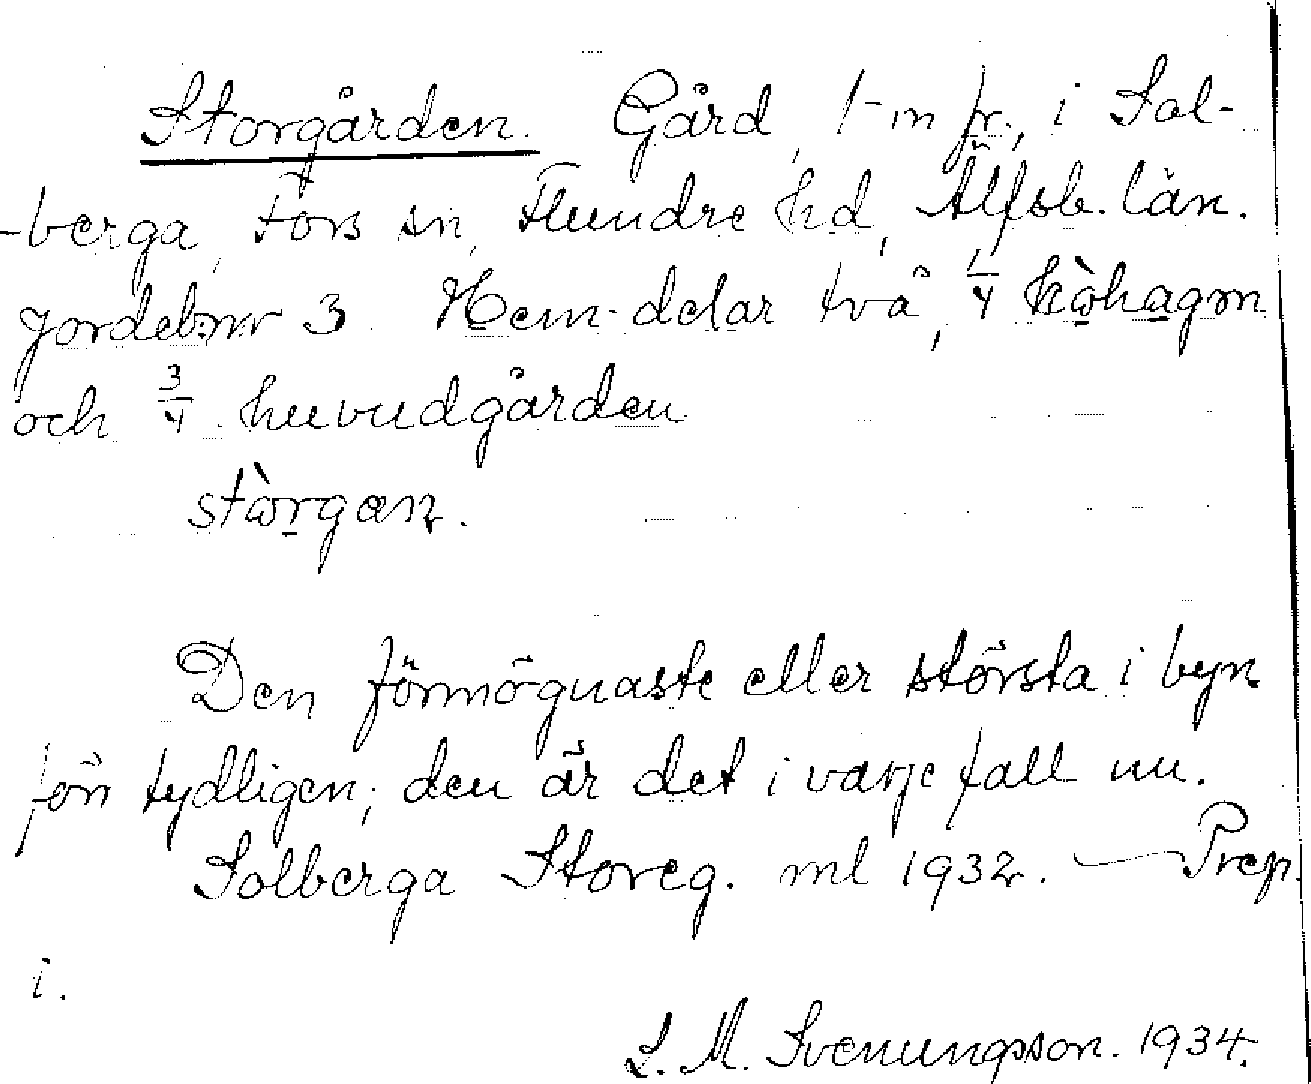 Storgården. Gård, 1-m fr., i Sol-
-berga, Fors sn, Flundre hd, Älfsb. län.
Jordebnr 3. Hem.delar två, 1/4 kòhagɐn
och 3/4 huvudgården
stòrgan.
Den förmögnaste eller största i byn
förr tydligen; den är det i varje fall nu.
Solberga Storeg. ml 1932. — Prep.
i.
L. M. Svenungsson. 1934.